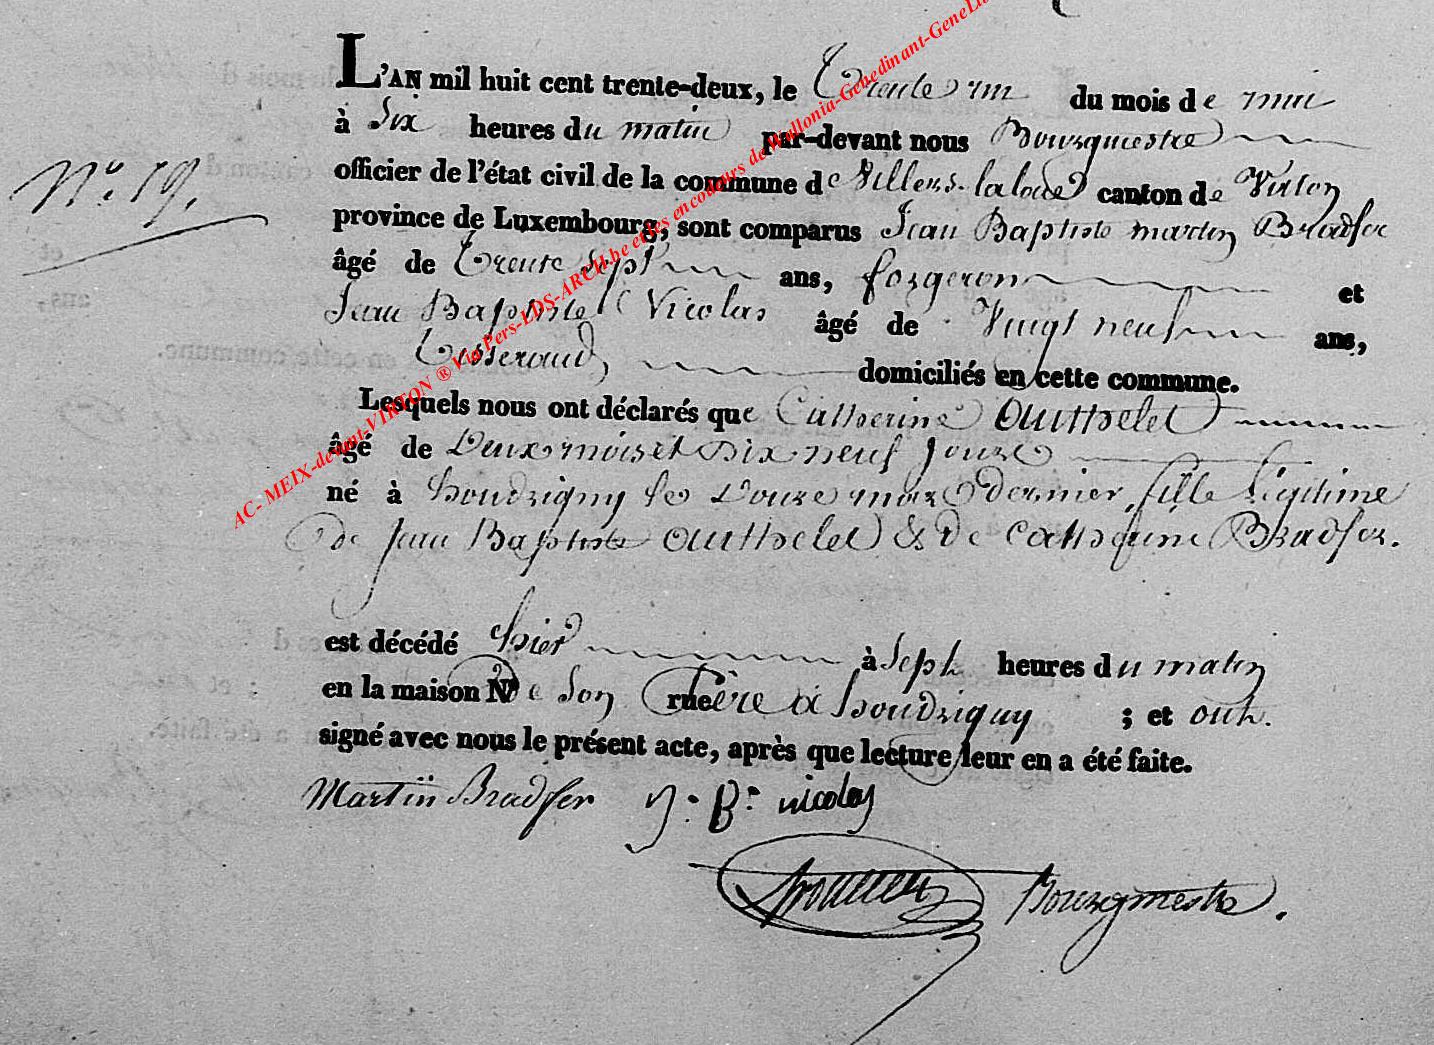 L'AN mil huit cent trente-deux, le Trente un du mois de mai
à Six heures du matin par-devant nous Bourgmestre
N.o 19.
officier de l'état civil de la commune de Villers-laloue canton de Virton
province de Luxembourg, sont comparus Jean Baptiste martin Bradfer
âgé de Trente Sept ans, forgeron et
Jean Baptiste Nicolas âgé de Vingt neuf ans,
Tisserand domiciliés en cette commune.
Lesquels nous ont déclarés que Catherine Outhelet
âgé de Deux mois et Dix neuf jours
né à houdrigny le Douze mars dernier, fille légitime
de Jean Baptiste Outhelet & de Catherine Bradfer.
est décédé hier à Sept heures du matin
en la maison N° de Son rue Père à houdrigny ; et ont
signé avec nous le présent acte, après que lecture leur en a été faite.
Martin Bradfer J. B. nicolas
Bourgmestre.
AC- MEIX-devant-VIRTON ® Via Pers-LDS-ARCH.be et les encodeurs de Wallonia-Genedinant-GeneLi